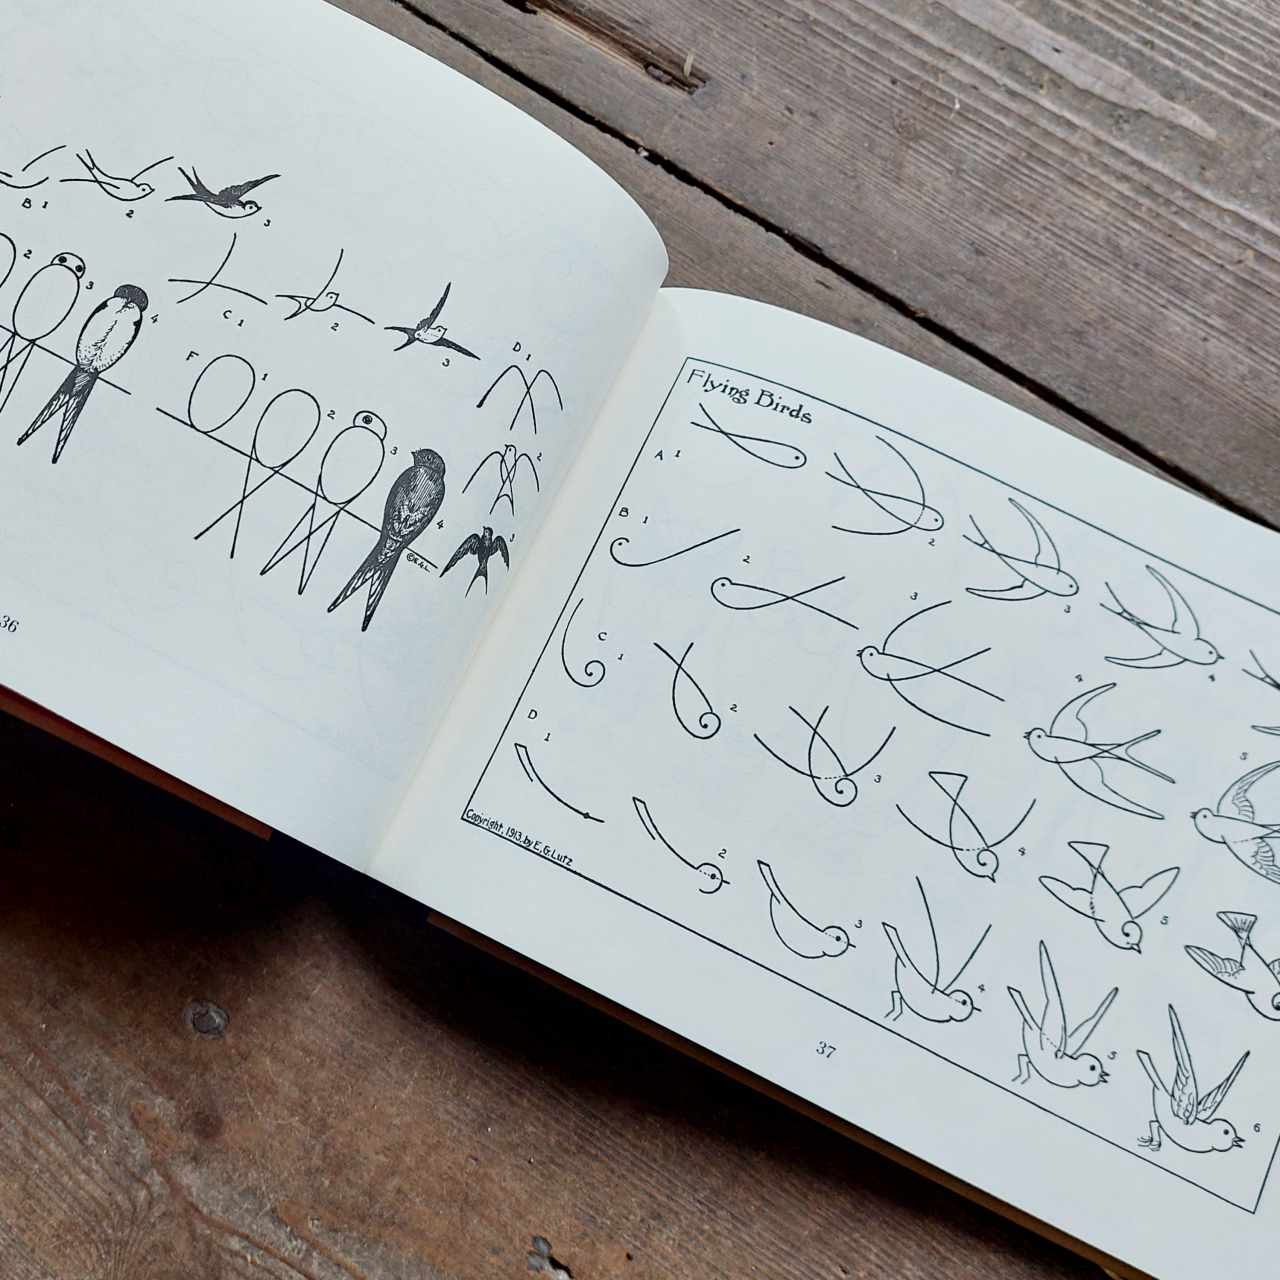 B 1
2
3
2
3
4
C 1
2
3
F
1
2
3
4
D 1
2
3
©E.G.L.
36
Flying Birds
A 1
2
3
4
B 1
2
3
4
5
C 1
2
3
4
5
D 1
2
3
4
5
6
Copyright, 1913, by E.G. Lutz
37